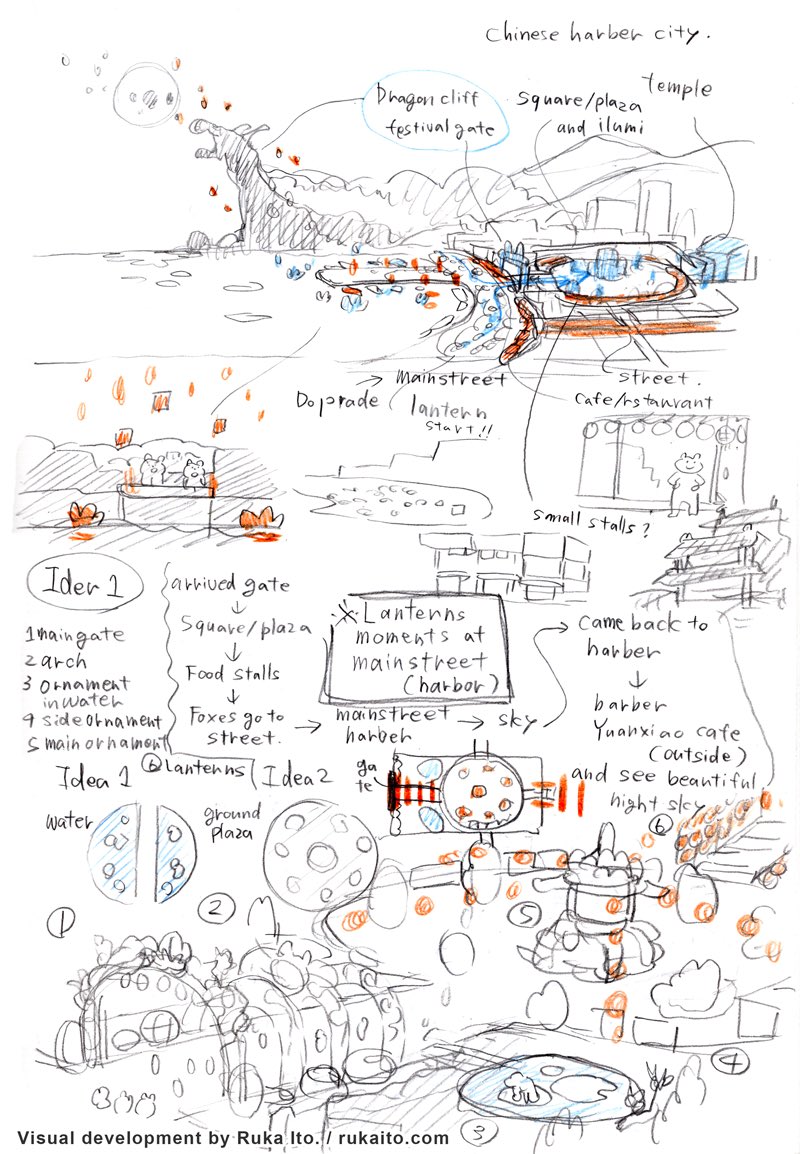 Chinese harber city.
Dragon cliff
festival gate
Square/plaza
and ilumi
temple
→ mainstreet
Doprade
lantern
start!!
street.
cafe/rstaurant
small stalls?
Ider 1
1 maingate
2 arch
3 ornament
in water
4 side ornament
5 main ornament
6 Lanterns
arrived gate
↓
Square/plaza
↓
Food stalls
↓
Foxes go to
street.
→ mainstreet
harber
※ Lanterns
moments at
mainstreet
(harbor)
→ sky
→ came back to
harber
↓
barber
Yuanxiao cafe
(outside)
and see beautiful
night sky
Idea 1
Idea 2
gate
water
ground
plaza
1
2
5
6
4
3
Visual development by Ruka Ito. / rukaito.com